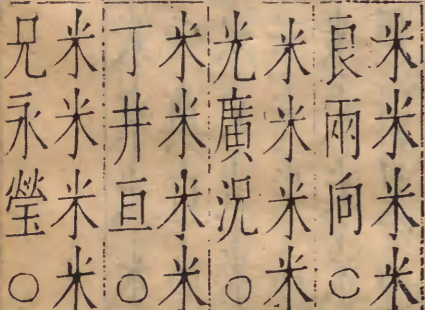 米米米米
良兩向○
米米米米
光廣況○
米米米米
丁井亘○
米米米米
兄永瑩○